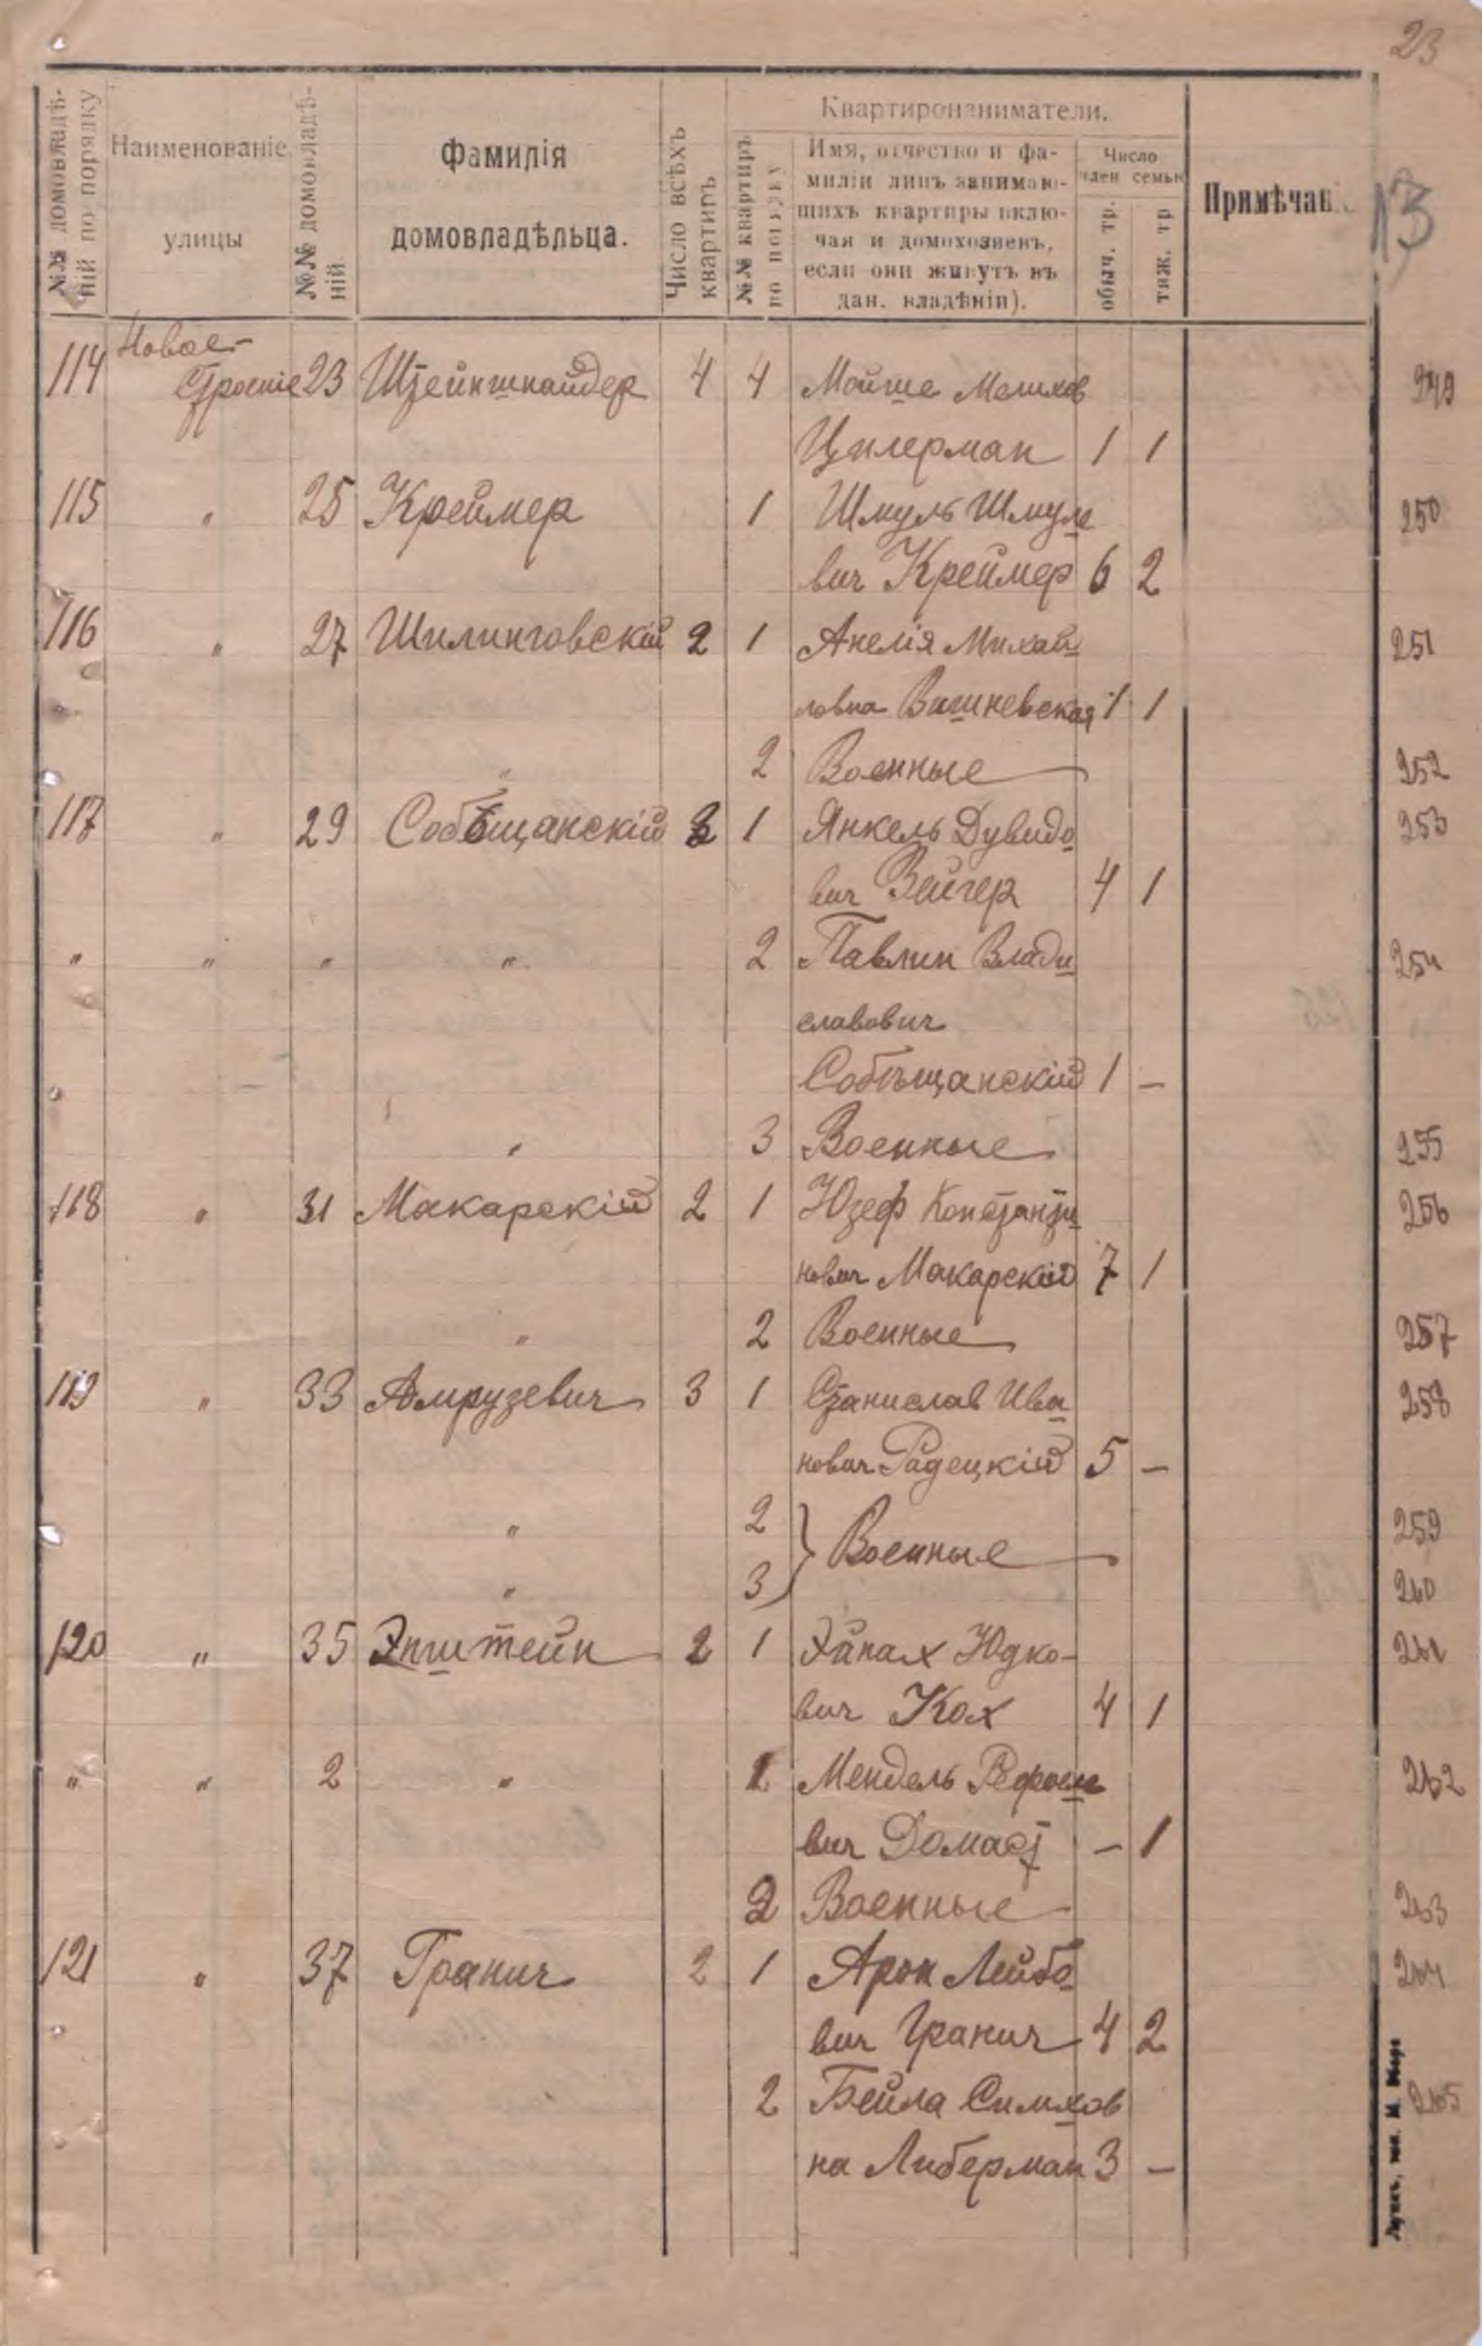 23
13
№№ домовладѣ-
ній по порядку
Наименованіе
улицы
№№ домовладѣ-
ній.
Фамилія
домовладѣльца.
Число всѣхъ
квартиръ
Квартиронаниматели.
№№ квартиръ
по порядку
Имя, отчество и фа-
миліи лицъ занимаю-
щихъ квартиры вклю-
чая и домохозяевъ,
если они живутъ въ
дан. владѣніи).
Число
член семьи
обыч. тр.
тяж. тр
Примѣчані
Новое-
114 Строеніе 23 Штейншнайдер 4 4 Мойше Мешков 249
Цилерман 1 1
115 " 25 Креймер 1 Шмуль Шмуле 250
вич Креймер 6 2
116 " 27 Шилинговскій 2 1 Анелія Михай 251
ловна Вишневская 1 1
" 2 Военные 252
117 " 29 Собѣщанскій 3 1 Янкель Дувидо 253
вич Вейгер 4 1
" " " " 2 Павлин Влади 254
славович
Собѣщанскій 1 –
" 3 Военные 255
118 " 31 Макарскій 2 1 Юзеф Константи 256
нович Макарскій 7 1
" 2 Военные 257
119 " 33 Амрузевич 3 1 Станислав Ива 258
нович Радецкій 5 –
" 2 259
} Военные
" 3 260
120 " 35 Эпштейн 2 1 Ханах Юдко- 261
вич Кох 4 1
" " 2 " 1 Мендель Рефоеле 262
вич Домаст – 1
2 Военные 263
121 " 37 Гранич 2 1 Арон Лейбо 264
вич Гранич 4 2
2 Бейла Симхов 265
на Либерман 3 –